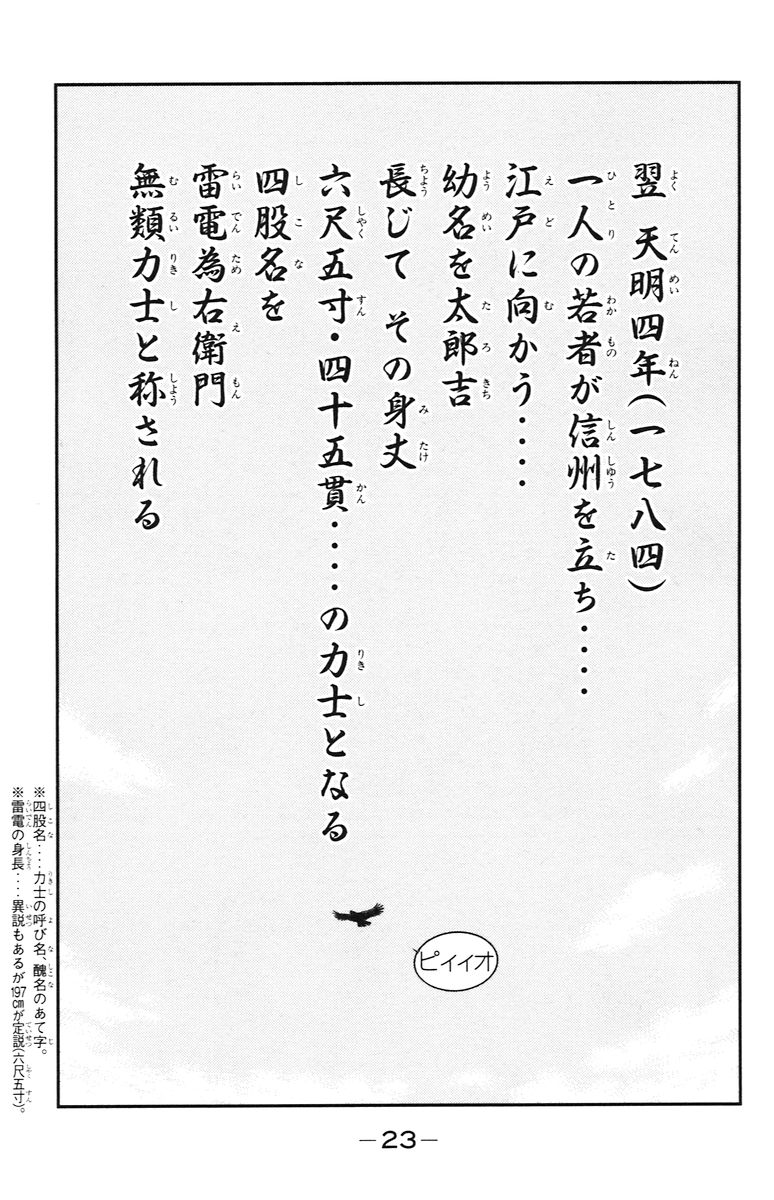 翌 天明四年(一七八四)
一人の若者が信州を立ち・・・・
江戸に向かう・・・・
幼名を太郎吉
長じて その身丈
六尺五寸・四十五貫・・・・の力士となる
四股名を
雷電為右衛門
無類力士と称される
ピイィオ
※四股名…力士の呼び名、醜名のあて字。
※雷電の身長…異説もあるが197cmが定説(六尺五寸)。
－23－